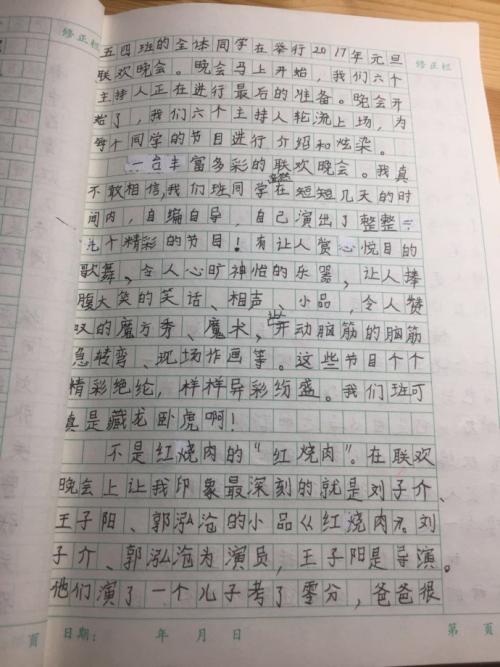 修正栏
修正栏
五四班的全体同学在举行2017年元旦
联欢晚会。晚会马上开始，我们六个
主持人正在进行最后的准备。晚会开
始了，我们六个主持人轮流上场，为
每个同学的节目进行介绍和炫染。
一台丰富多彩的联欢晚会。我真
不敢相信，我们班同学在短短几天的时
间内，自编自导，自己演出了整整二
九个精彩的节目！有让人赏心悦目的
歌舞、令人心旷神怡的乐器，让人捧
腹大笑的笑话、相声、小品，令人赞
叹的魔方秀、魔术，开动脑筋的脑筋
急转弯、现场作画等。这些节目个个
精彩绝纶，样样异彩纷盛。我们班可
真是藏龙卧虎啊！
不是红烧肉的“红烧肉”。在联欢
晚会上让我印象最深刻的就是刘子介、
王子阳、郭泓沧的小品《红烧肉》。刘
子介、郭泓沧为演员，王子阳是导演。
他们演了一个儿子考了零分，爸爸很
頁
日期： 年 月 日
第 頁